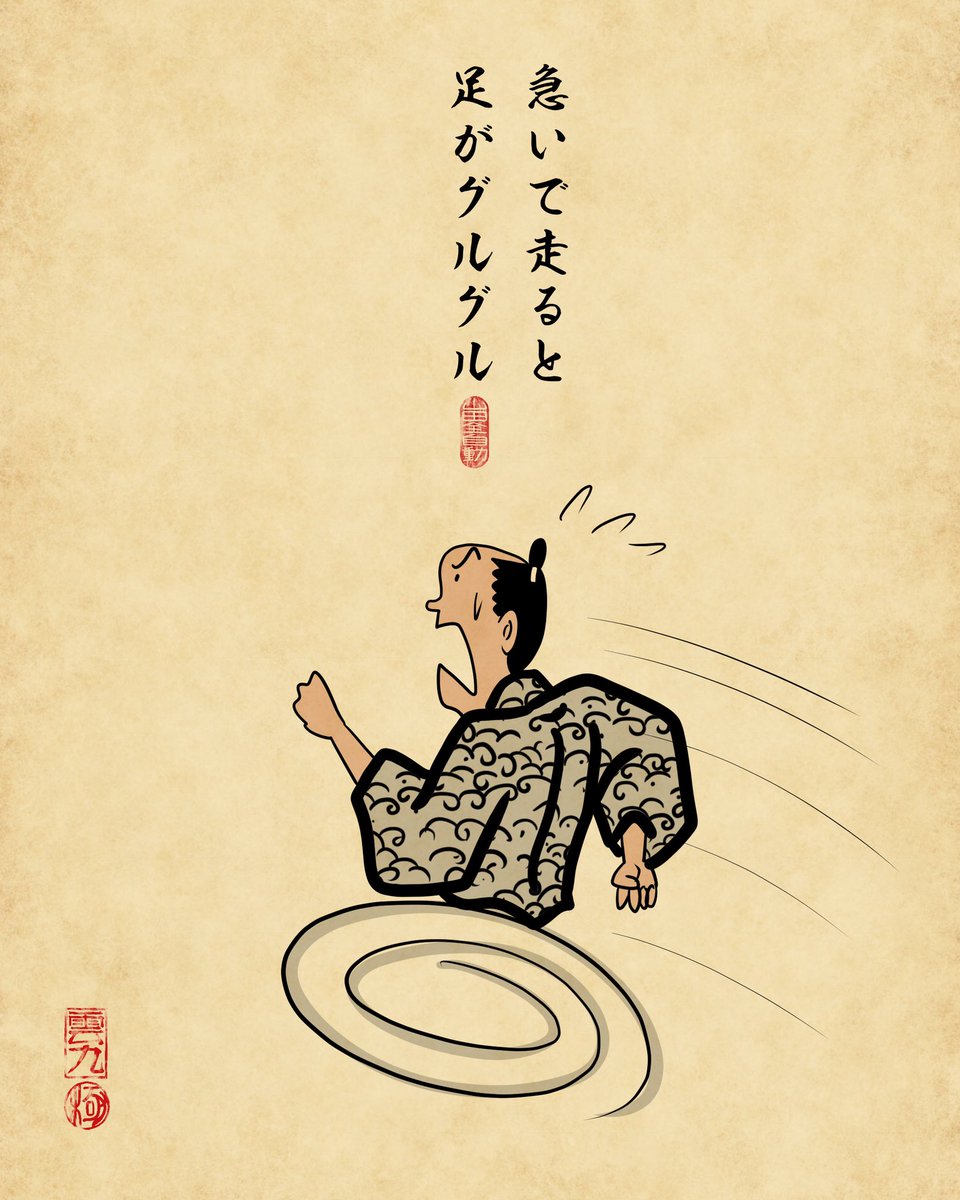 急いで走ると
足がグルグル
雲九
極